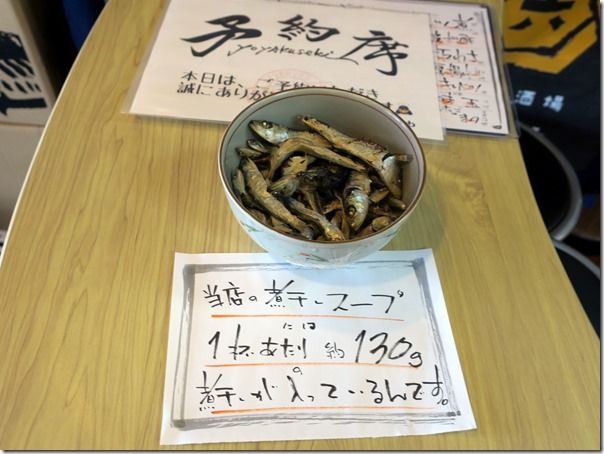 予約席
yoyakuseki
本日は、ご予約いただき
誠にありが
酒場
当店の煮干しスープ
1杯あたりには約130gの
煮干しが入っているんです。